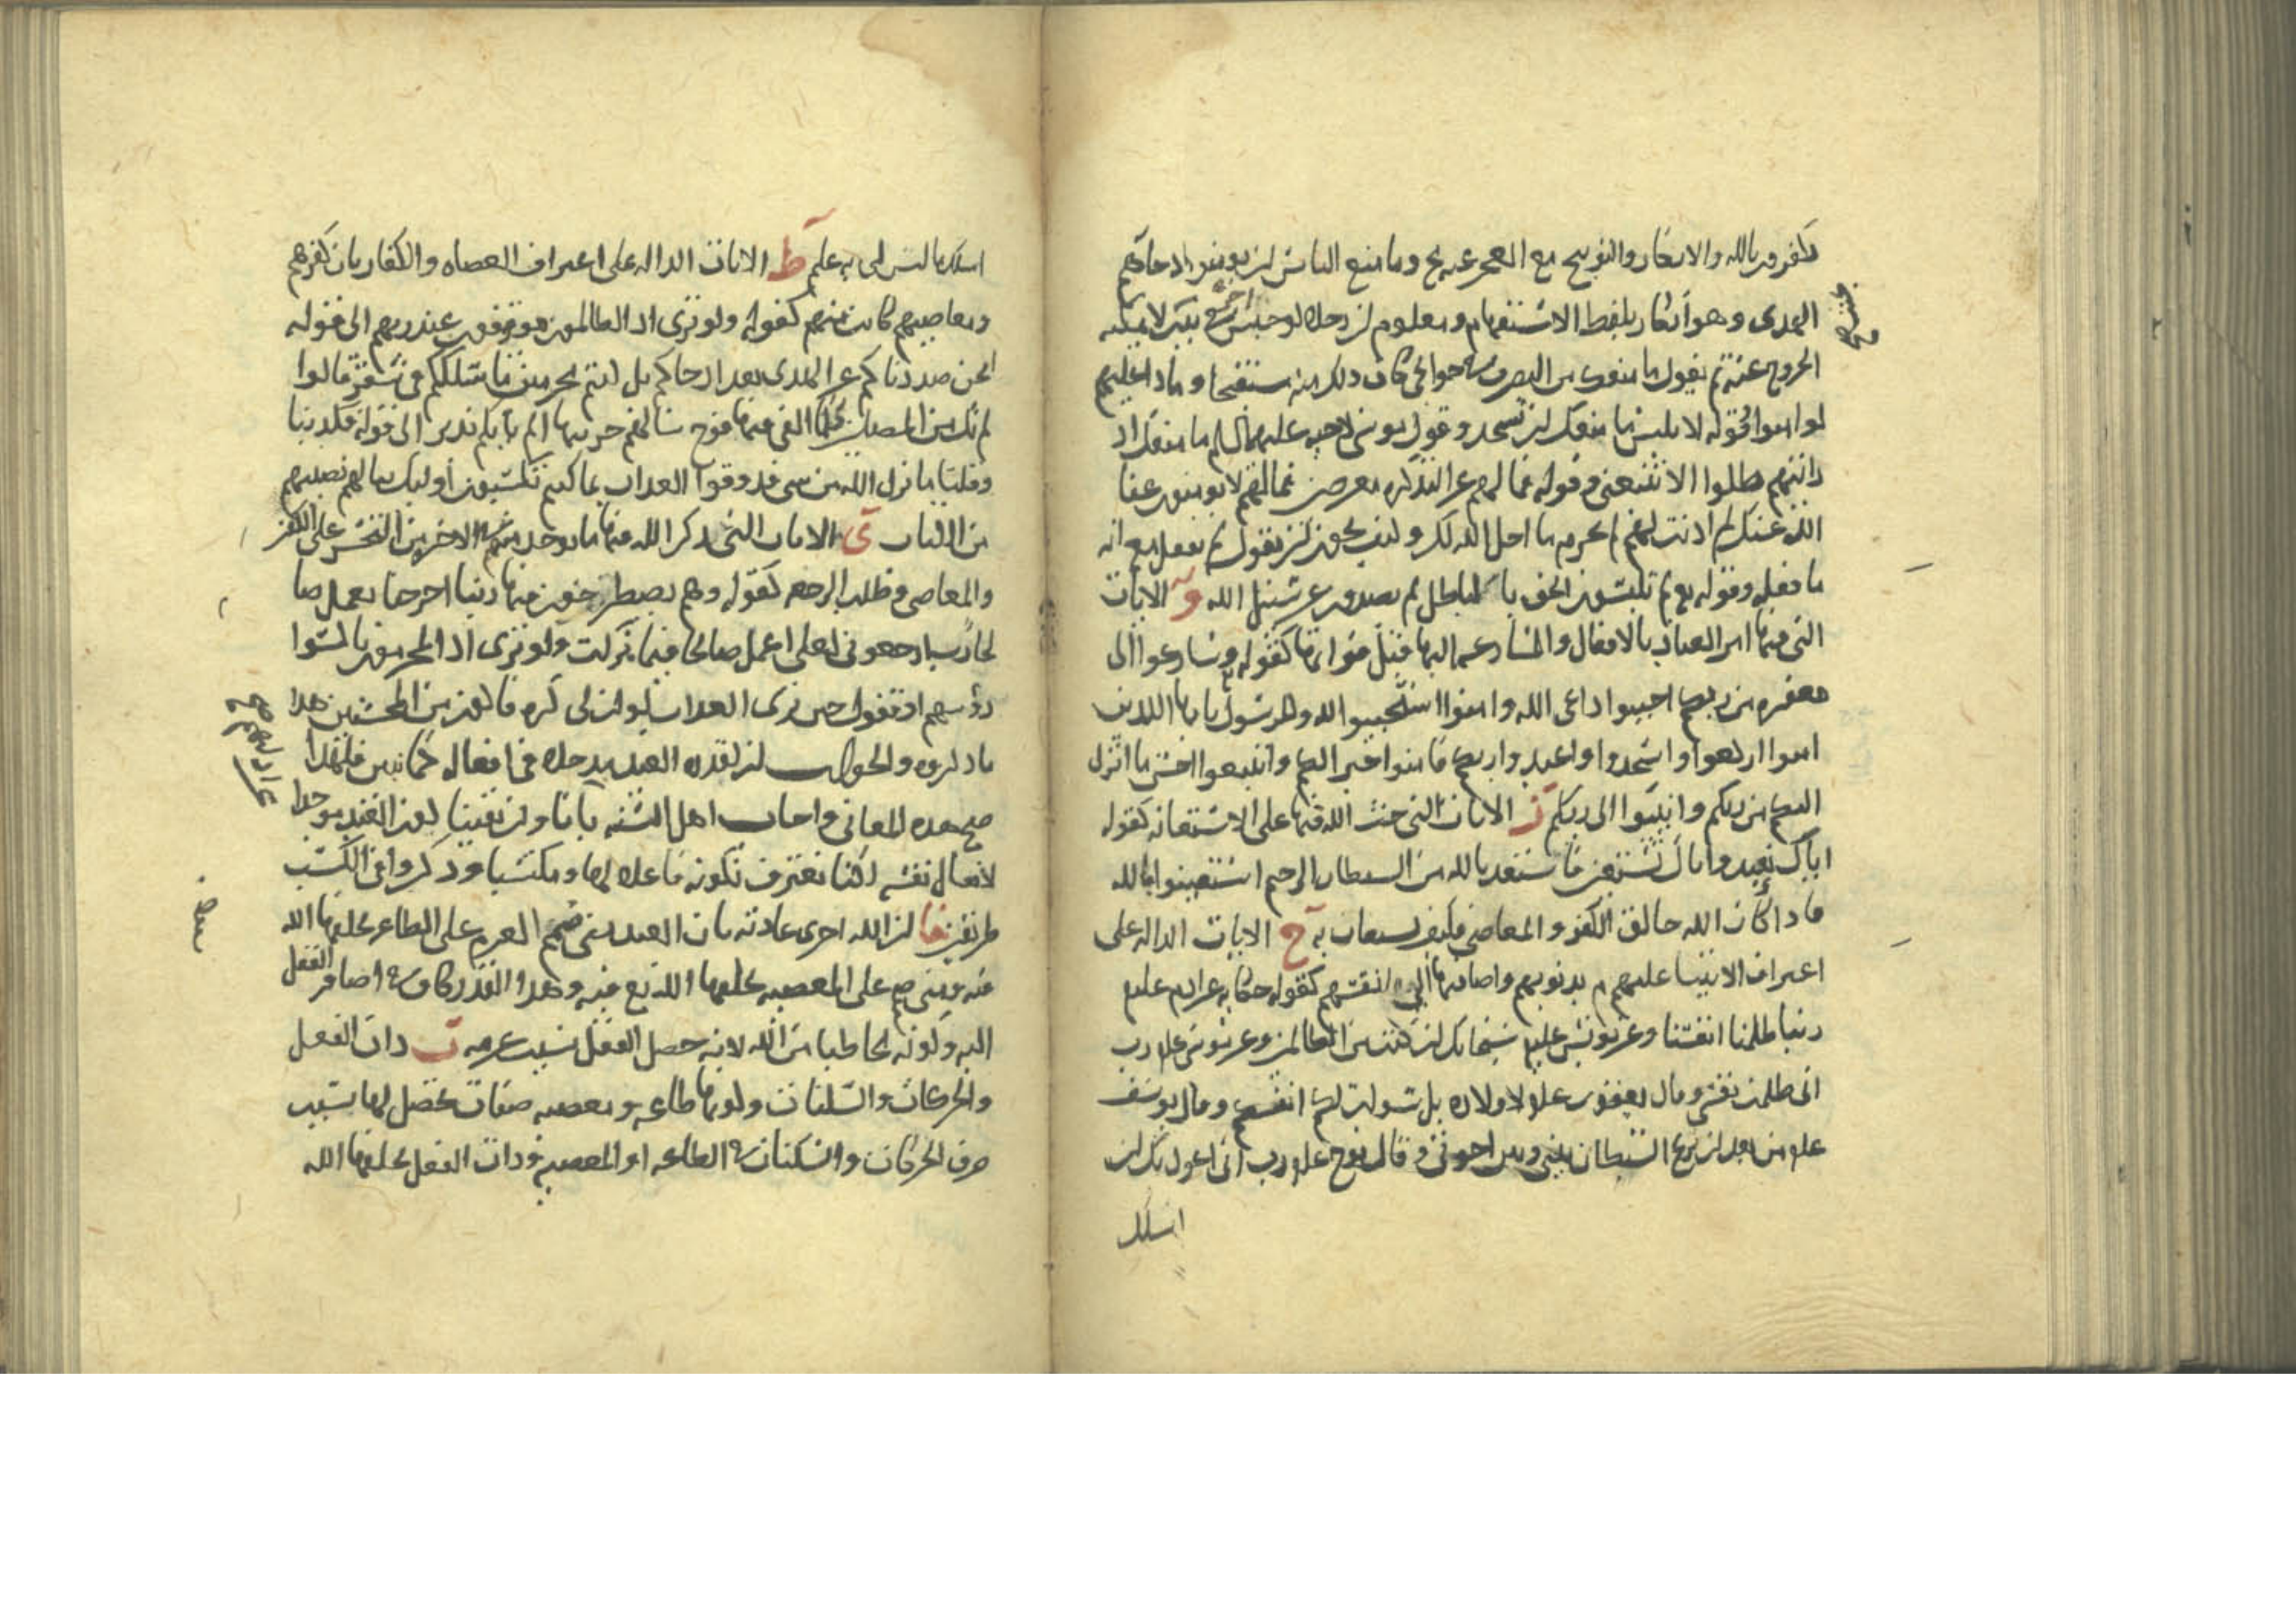 تكفرون بالله والانكار والتوبيخ مع العجز عنه قبيح وما منع الناس ان يومنوا اذ جاءهم
الهدى وهو انكار بلفظ الاستفهام ومعلوم ان رجلا لو حبس اخر في بيت لا يمكنه
الخروج عنه ثم يقول ما منعك من التصرف في حوائجي كان ذلك منه مستقبحا وماذا عليهم
لو امنوا وقوله لابليس ما منعك ان تسجد وقول موسى لاخيه عليهما السلم ما منعك اذ
رايتهم ضلوا الا تتبعني وقوله فما لهم عن التذكره معرضين فما لهم لا يومنون عفا
الله عنك لم اذنت لهم لم تحرم ما احل الله لك وكيف يجوز ان يقول لم تفعل مع انه
ما فعله وقوله تع لم تلبسون الحق بالباطل لم تصدون عن سبيل الله و الايات
التي فيها امر العباد بالافعال والمسارعه اليها قبل فواتها كقوله وسارعوا الى
مغفره من ربكم اجيبوا داعي الله وامنوا استجيبوا لله وللرسول يا ايها الذين
امنوا اركعوا واسجدوا واعبدوا ربكم فامنوا خيرا لكم واتبعوا احسن ما انزل
اليكم من ربكم وانيبوا الى ربكم ز الايات التي حث الله فيها على الاستعانه كقوله
اياك نعبد واياك نستعين فاستعذ بالله من الشيطان الرجيم استعينوا بالله
فاذا كان الله خالق الكفر والمعاصي فكيف يستعان به ح الايات الداله على
اعتراف الانبيا عليهم م بذنوبهم واضافتها الى انفسهم كقوله حكايه عن ادم عليم
ربنا ظلمنا انفسنا وعن يونس عليم سبحانك اني كنت من الظالمين وعن موسى علم رب
اني ظلمت نفسي وقال يعقوب علم لاولاده بل سولت لكم انفسكم وقال يوسف
علم من بعد ان نزغ الشيطان بيني وبين اخوتي وقال نوح علم رب اني اعوذ بك ان
اسلك
اسلك ما ليس لي به علم ط الايات الداله على اعتراف العصاه والكفار بان كفرهم
ومعاصيهم كانت منهم كقوله ولو ترى اذ الظالمون موقوفون عند ربهم الى قوله
انحن صددناكم عن الهدى بعد اذ جاكم بل كنتم مجرمين ما سلككم في سقر قالوا
لم نك من المصلين كلما القي فيها فوج سالهم خزنتها الم ياتكم نذير الى قوله فكذبنا
وقلنا ما نزل الله من شي فذوقوا العذاب بما كنتم تكسبون اوليك ينالهم نصيبهم
من الكتاب ى الايات التي ذكر الله فيها ما يوجد منهم في الاخره من التحسر على الكفر
والمعاصي وطلب الرجعه كقوله وهم يصطرخون فيها ربنا اخرجنا نعمل صا
لحا رب ارجعوني لعلي اعمل صالحا فيما تركت ولو ترى اذ المجرمون ناكسوا
رؤسهم او تقول حين ترى العذاب لو ان لي كره فاكون من المحسنين هذا
ما ذكروه والجواب ان لقدره العبد مدخلا في افعاله كما نبين فلهذا
صح هذه المعاني واجاب اهل السنه بانا وان نفينا كون العبد موجدا
لافعال نفسه لكنا نعترف بكونه فاعلا لها ومكتسبا وذكروا في الكسب
طريقين ا ان الله اجرى عادته بان العبد متى صمم العزم على الطاعه خلقها الله
فيه ومتى صمم على المعصيه خلقها الله تع فيه وهذا القدر كاف في اضافه الفعل
اليه وكونه مخاطبا من الله لانه حصل الفعل بسبب عزمه ب ذات الفعل
والحركات والسكنات وكونها طاعه ومعصيه صفات تحصل لها بسبب
صرف الحركات والسكنات في الطاعه او المعصيه فذات الفعل خلقها الله